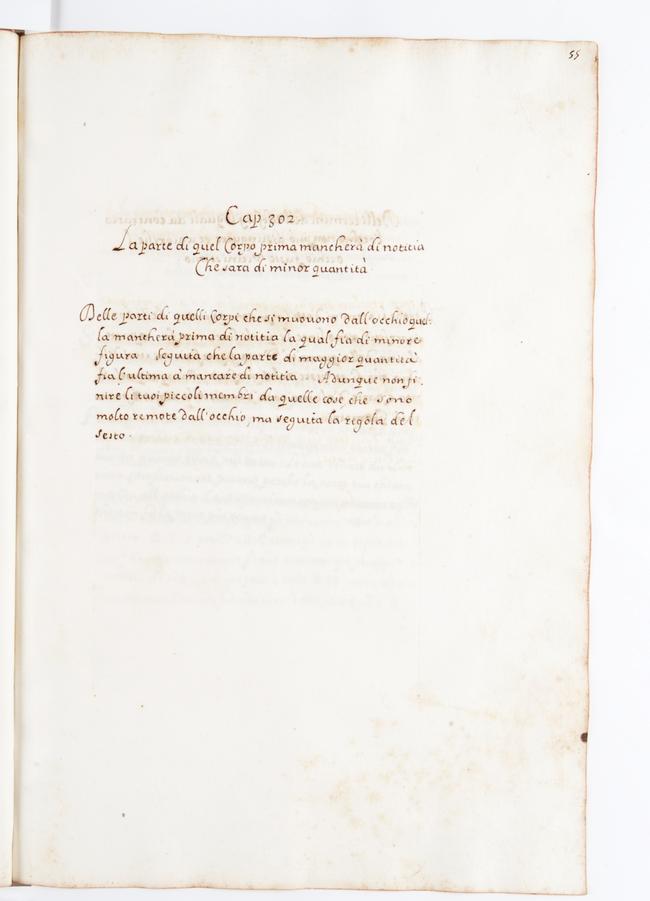 55
Cap 302
La parte di quel Corpo prima mancherà di notitia
Che sara di minor quantità
Delle parti di quelli Corpi che si muouono dall'occhio quel:
la mancherà prima di notitia la qual fia di minore
figura seguita che la parte di maggior quantità
fia l'ultima à mancare di notitia Adunque non fi.
nire li tuoi piccoli membri da quelle cose, che sono
molto remote dall'occhio, ma seguita la regola del
sesto.